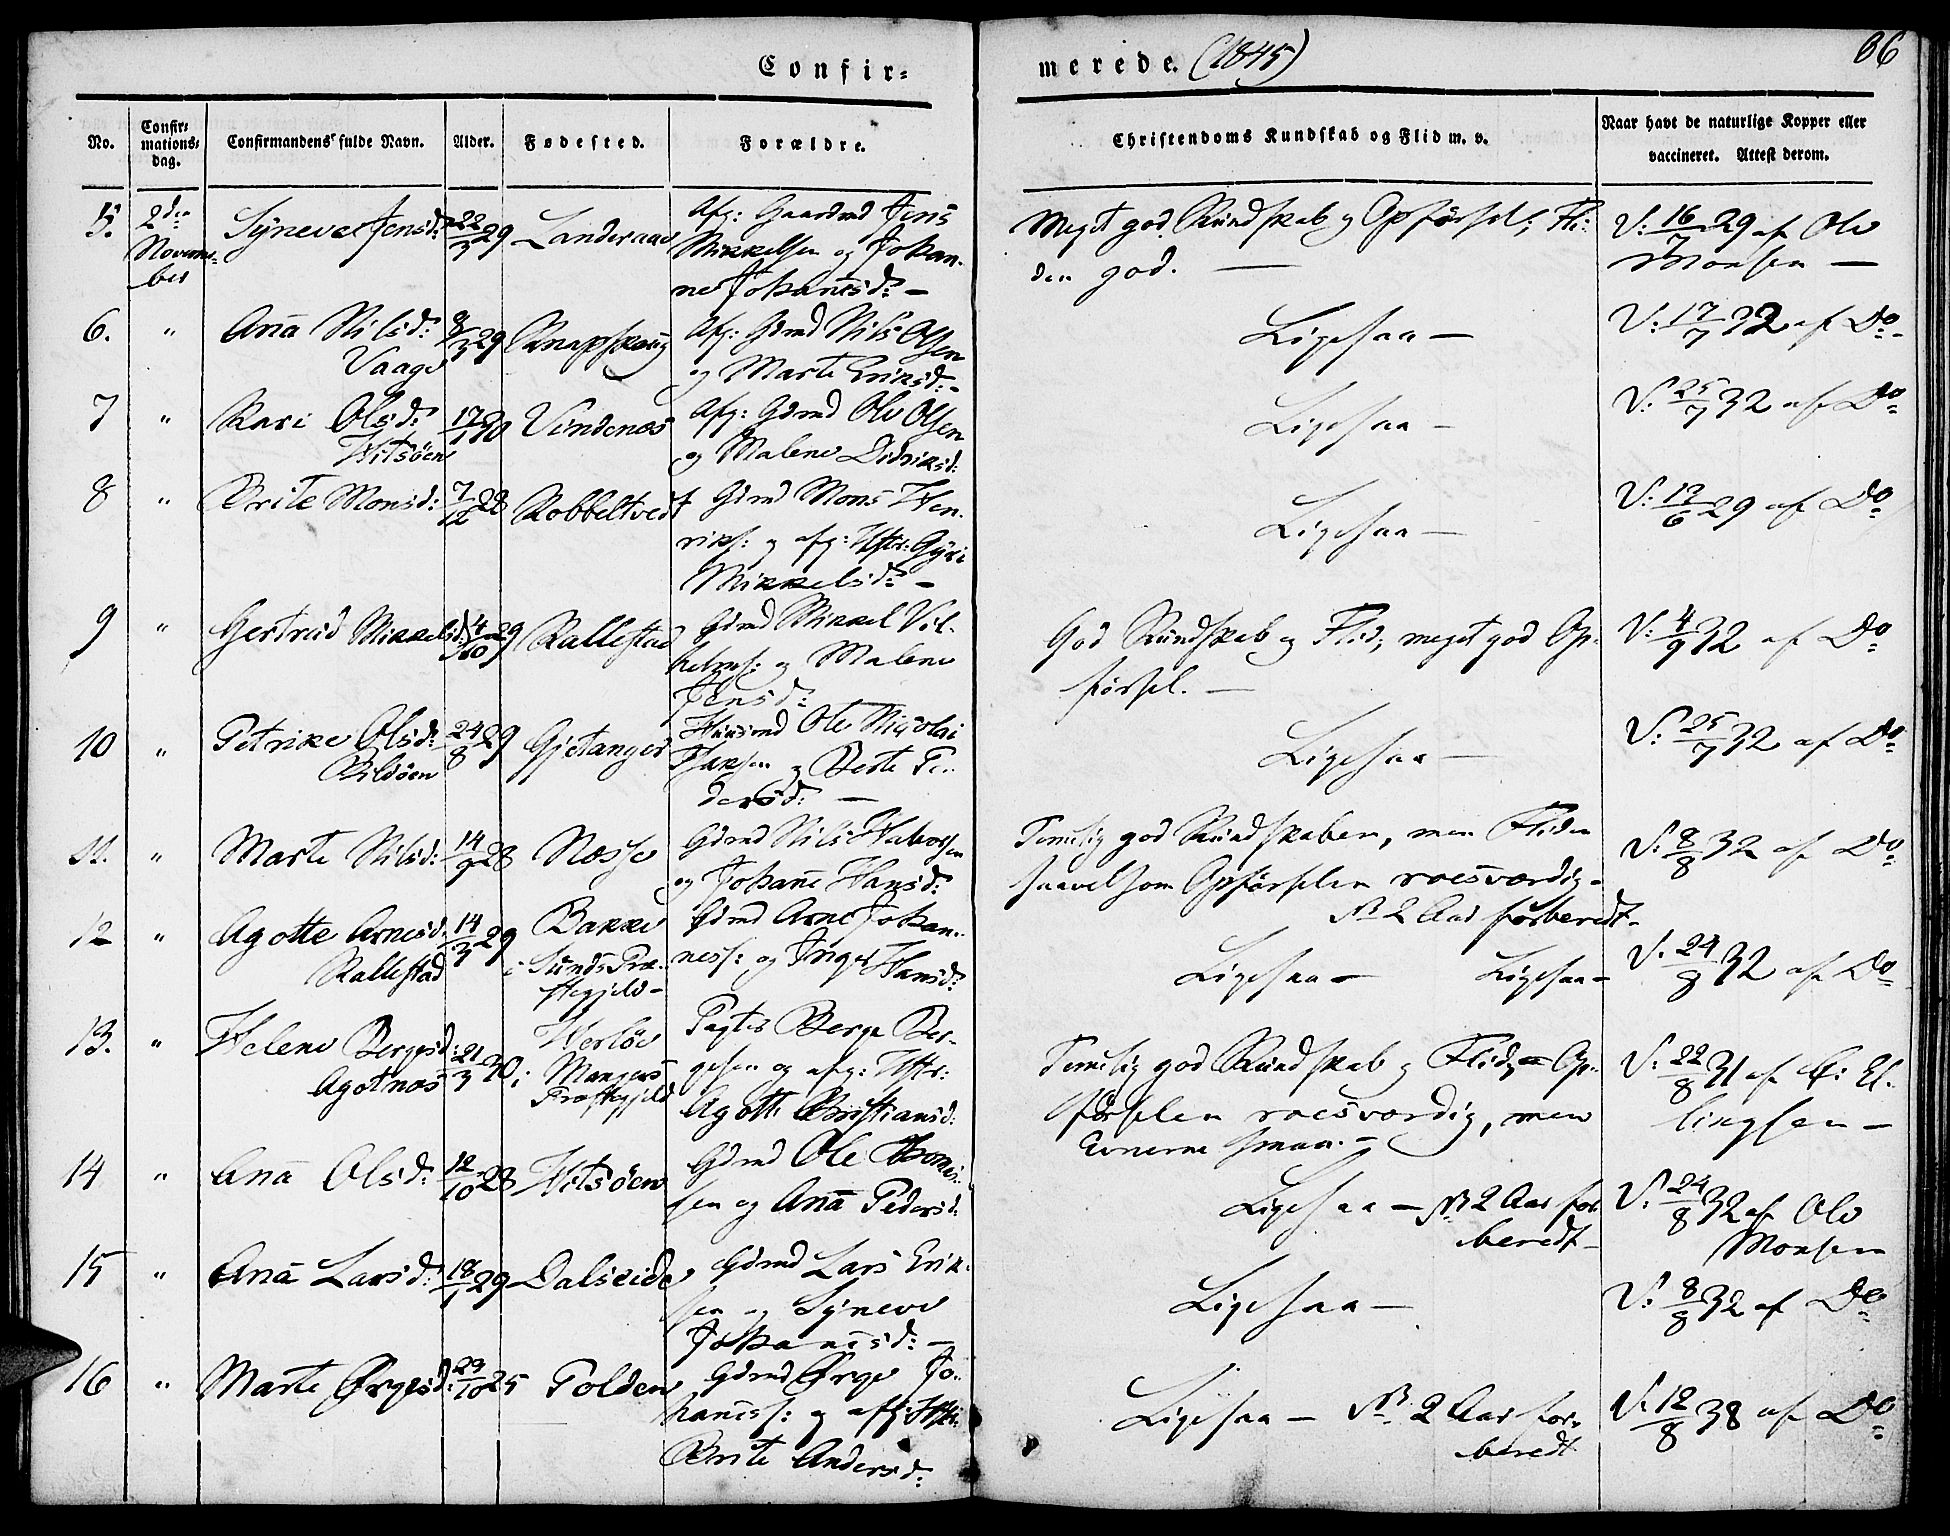 Confir-
merede. (1845)
66
No.
Confir-
mations-
dag.
Confirmandens fulde Navn.
Alder.
Fødested.
Forældre.
Christendoms Kundskab og Flid m. v.
Naar havt de naturlige Kopper eller
vaccineret. Attest derom.
5. 2den Syneve Jensd: 22/3 29 Landeraae Afg: Gaardmd Jens
Novem- Mikkelsen og Johan-
ber ne Johanesd: —
Meget god Kundskab og Opførsel; Fli-
den god. —
V: 16/7 29 af Ole
Monsen —
6. " Ana Nilsd: 9/3 29 Knapskoug Afg: Gdmd Nils Olsen
Vaage og Marte Eriksd: -
Ligesaa —
V: 17/7 32 af Do -
7 " Kari Olsd: 17/1 30 Vindenæs Afg: Gdmd Ole Olsen
Hitsöen og Malene Didriksd:
Ligesaa —
V: 25/7 32 af Do
8 " Brite Monsd: 7/12 28 Kobbeltvedt Gdmd Mons Hen-
riks: og afg: Hstr: Gyri
Mikkelsd: —
Ligesaa —
V: 17/6 29 af Do
9 " Gertrud Mikkelsd: 4/10 29 Kallestad Gdmd Mikkel Vil-
helms: og Malene
Jensd:
God Kundskab og Flid; meget god Op-
førsel. —
V: 4/9 32 af Do
10 " Petrike Olsd: 24/8 29 Gjetanger Huusmd Ole Nicolai
Bildöen Hansen og Berte Pe-
dersd: —
Ligesaa —
V: 25/7 32 af Do
11. " Marte Nilsd: 14/9 28 Næsse Gdmd Nils Halvorsen
og Johane Hansd:
Temelig god Kundskaben, men Fliden
saavelsom Opførselen roesværdig -
NB 2 Aar forberedt -
V: 8/8 32 af Do
12 " Agotte Arnesd: 14/3 29 Bakke Gdmd Arne Johan-
Kallestad i Sunds Præ- ness: og Inger Hansd:
stegjeld -
Ligesaa — Ligesaa —
V. 24/8 32 af Do
13. " Helene Bergesd: 21/3 30 Herlöe Pagter Berge Ber-
Agotnæs i Mangers gesen og afg: Hstr:
Præstegjeld Agotte Kristiansd:
Temelig god Kundskab og Flid, Op-
førselen roesværdig, men
Evnerne smaa. —
V: 22/8 31 af E: El-
lingsen —
14 " Ana Olsd: 12/10 28 Hitsöen Gdmd Ole Thomes-
sen og Ana Pedersd:
Ligesaa — NB 2 Aar for-
beredt —
V: 24/8 32 af Ole
Monsen
15 " Ana Larsd: 18/1 29 Dalseide Gdmd Lars Erik-
sen og Syneve
Johanesd: —
Ligesaa —
V: 8/8 32 af Do
16 " Marte Ørgesd: 23/10 25 Tolden Gdmd Ørge Jo-
haness: og afg: Hstr:
Brite Andersd:
Ligesaa — NB 2 Aar for-
beredt
V: 12/8 38 af Do